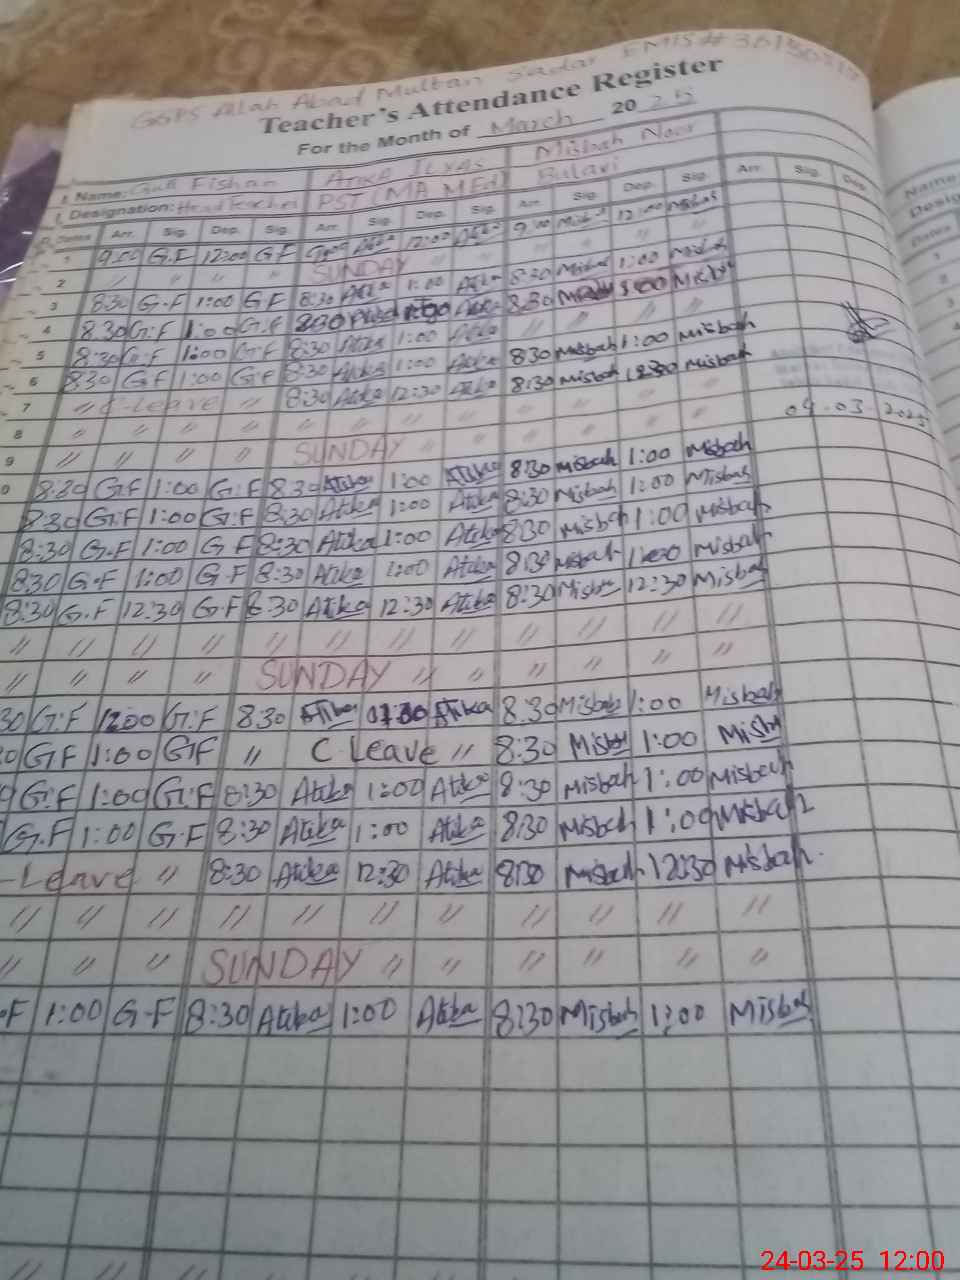 GGPS Allah Abad Multan Sadar EMIS#
Teacher's Attendance Register
For the Month of March 2025
Name: Gull Fishan Atika Ilyas Misbah Noor
Designation: Head teacher PST (MA MEd)
Dates Arr. Sig. Dep. Sig. Arr. Sig. Dep. Sig. Arr. Sig. Dep. Sig. Arr. Sig. Dep.
1 9:00 G.F 12:00 G.F Atika 12:00 Atika 9:00 Misbah 12:00 Misbah
2 " " " " SUNDAY " " " "
3 8:30 G.F 1:00 G.F 8:30 Atika 1:00 Atika 8:30 Misbah 1:00 Misbah
4 8:30 G.F 1:00 G.F 8:30 Atika 8:30 Misbah
5 8:30 G.F 1:00 G.F 8:30 Atika 1:00 Atika " " " "
6 8:30 G.F 1:00 G.F 8:30 Atika 1:00 Atika 8:30 Misbah 1:00 Misbah
7 " C-Leave " 8:30 Atika 12:30 Atika 8:30 Misbah 12:30 Misbah
8 " " " " " " " "
04.03.2025
9 " " " " SUNDAY " " " " "
0 8:30 G.F 1:00 G.F 8:30 Atika 1:00 Atika 8:30 Misbah 1:00 Misbah
8:30 G.F 1:00 G.F 8:30 Atika 1:00 Atika 8:30 Misbah 1:00 Misbah
8:30 G.F 1:00 G.F 8:30 Atika 1:00 Atika 8:30 Misbah 1:00 Misbah
8:30 G.F 1:00 G.F 8:30 Atika 1:00 Atika 8:30 Misbah 1:00 Misbah
8:30 G.F 12:30 G.F 8:30 Atika 12:30 Atika 8:30 Misbah 12:30 Misbah
" " " " " " " " " " " "
" " " " SUNDAY " " " " " "
30 G.F 1:00 G.F 8:30 Atika 01:00 Atika 8:30 Misbah 1:00 Misbah
0 G.F 1:00 G.F " C-Leave " 8:30 Misbah 1:00 Misbah
G.F 1:00 G.F 8:30 Atika 1:00 Atika 8:30 Misbah 1:00 Misbah
G.F 1:00 G.F 8:30 Atika 1:00 Atika 8:30 Misbah 1:00 Misbah
-Leave " 8:30 Atika 12:30 Atika 8:30 Misbah 12:30 Misbah
" " " " " " " " " " "
" " " SUNDAY " " " " " "
F 1:00 G.F 8:30 Atika 1:00 Atika 8:30 Misbah 1:00 Misbah
24-03-25 12:00